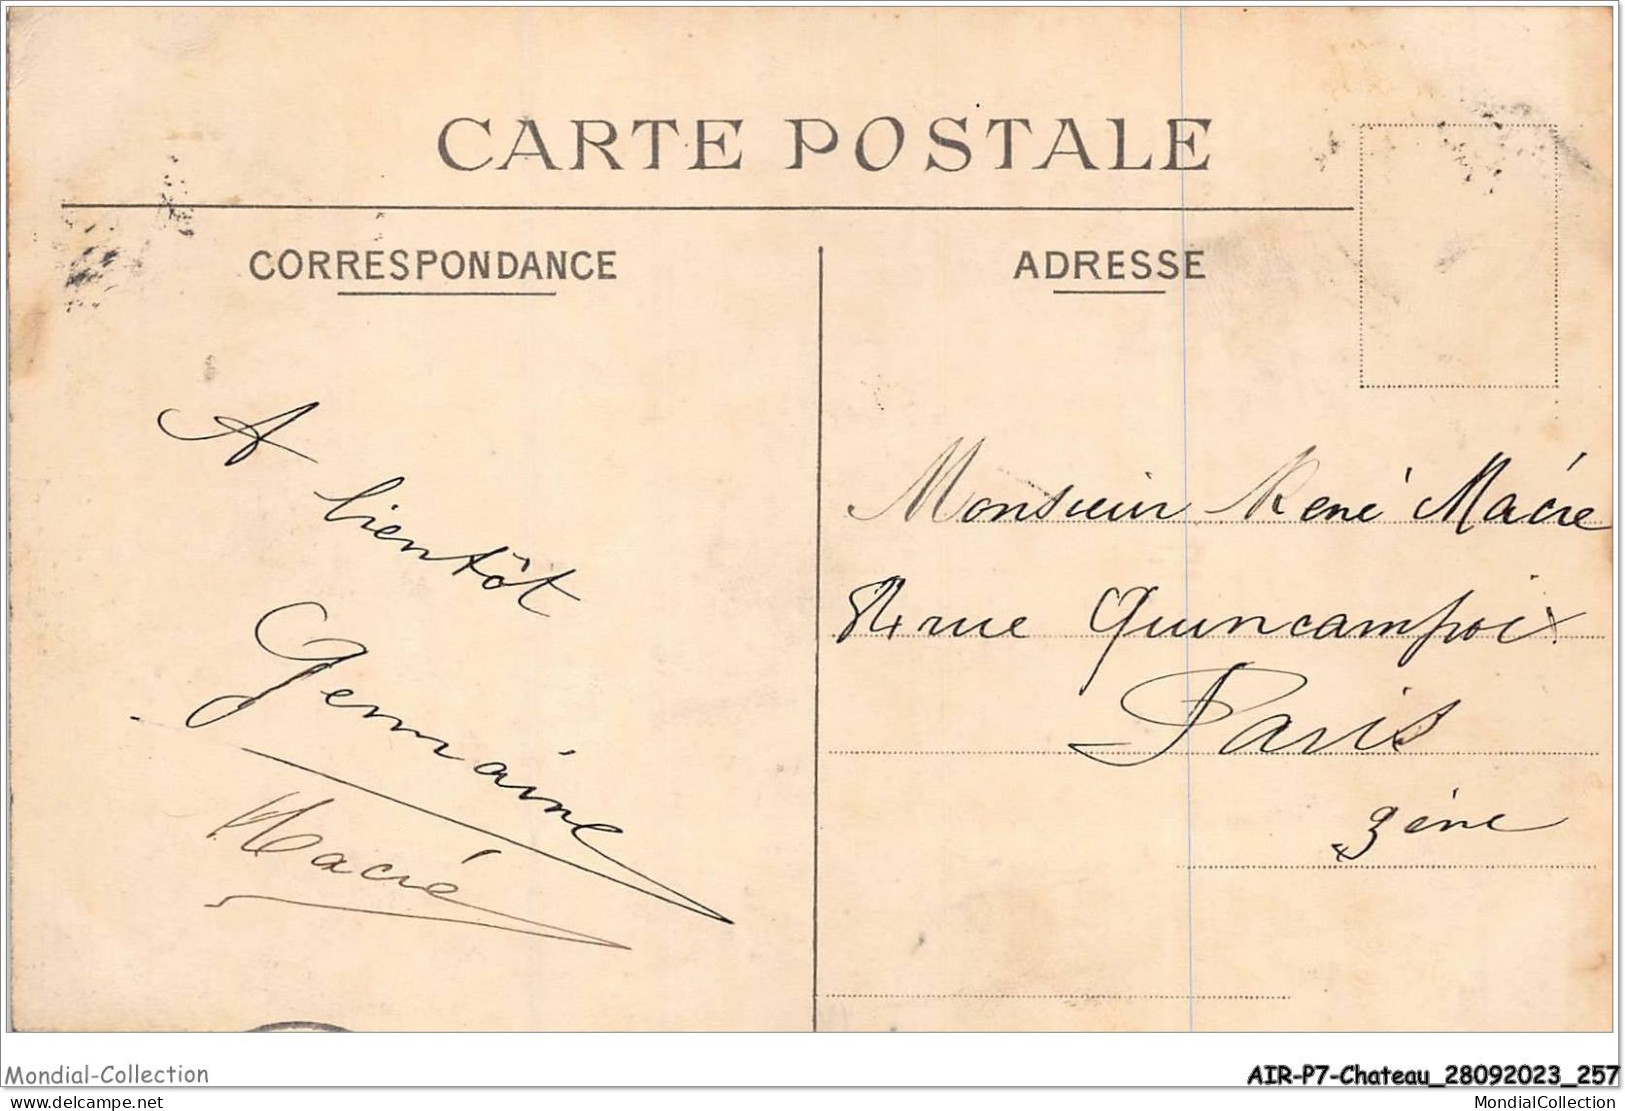 CARTE POSTALE
CORRESPONDANCE
A bientôt
Germaine
Macré
ADRESSE
Monsieur René Macré
rue Quincampoix
Paris
3ème
Mondial-Collection
AIR-P7-Chateau_28092023_257
www.delcampe.net
MondialCollection